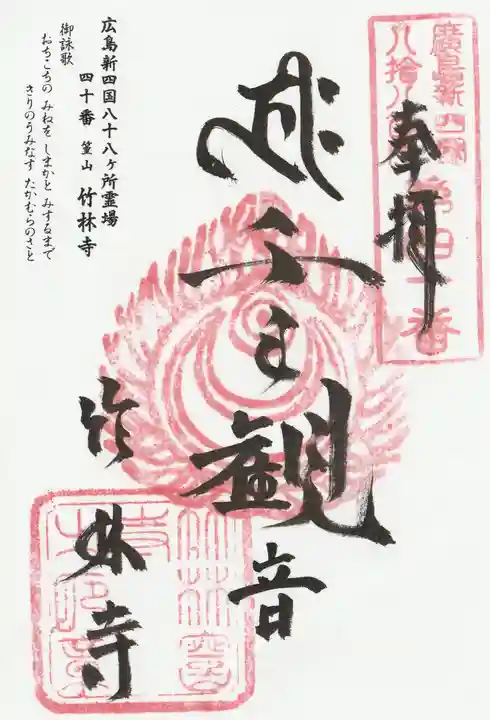 奉拝
千手観音
竹林寺
廣島新四国
八拾八
第四十番
広島新四国八十八ヶ所霊場
四十番 篁山 竹林寺
御詠歌
おちこちの みねを しまかと みするまで
きりのうみなす たかむらのさと